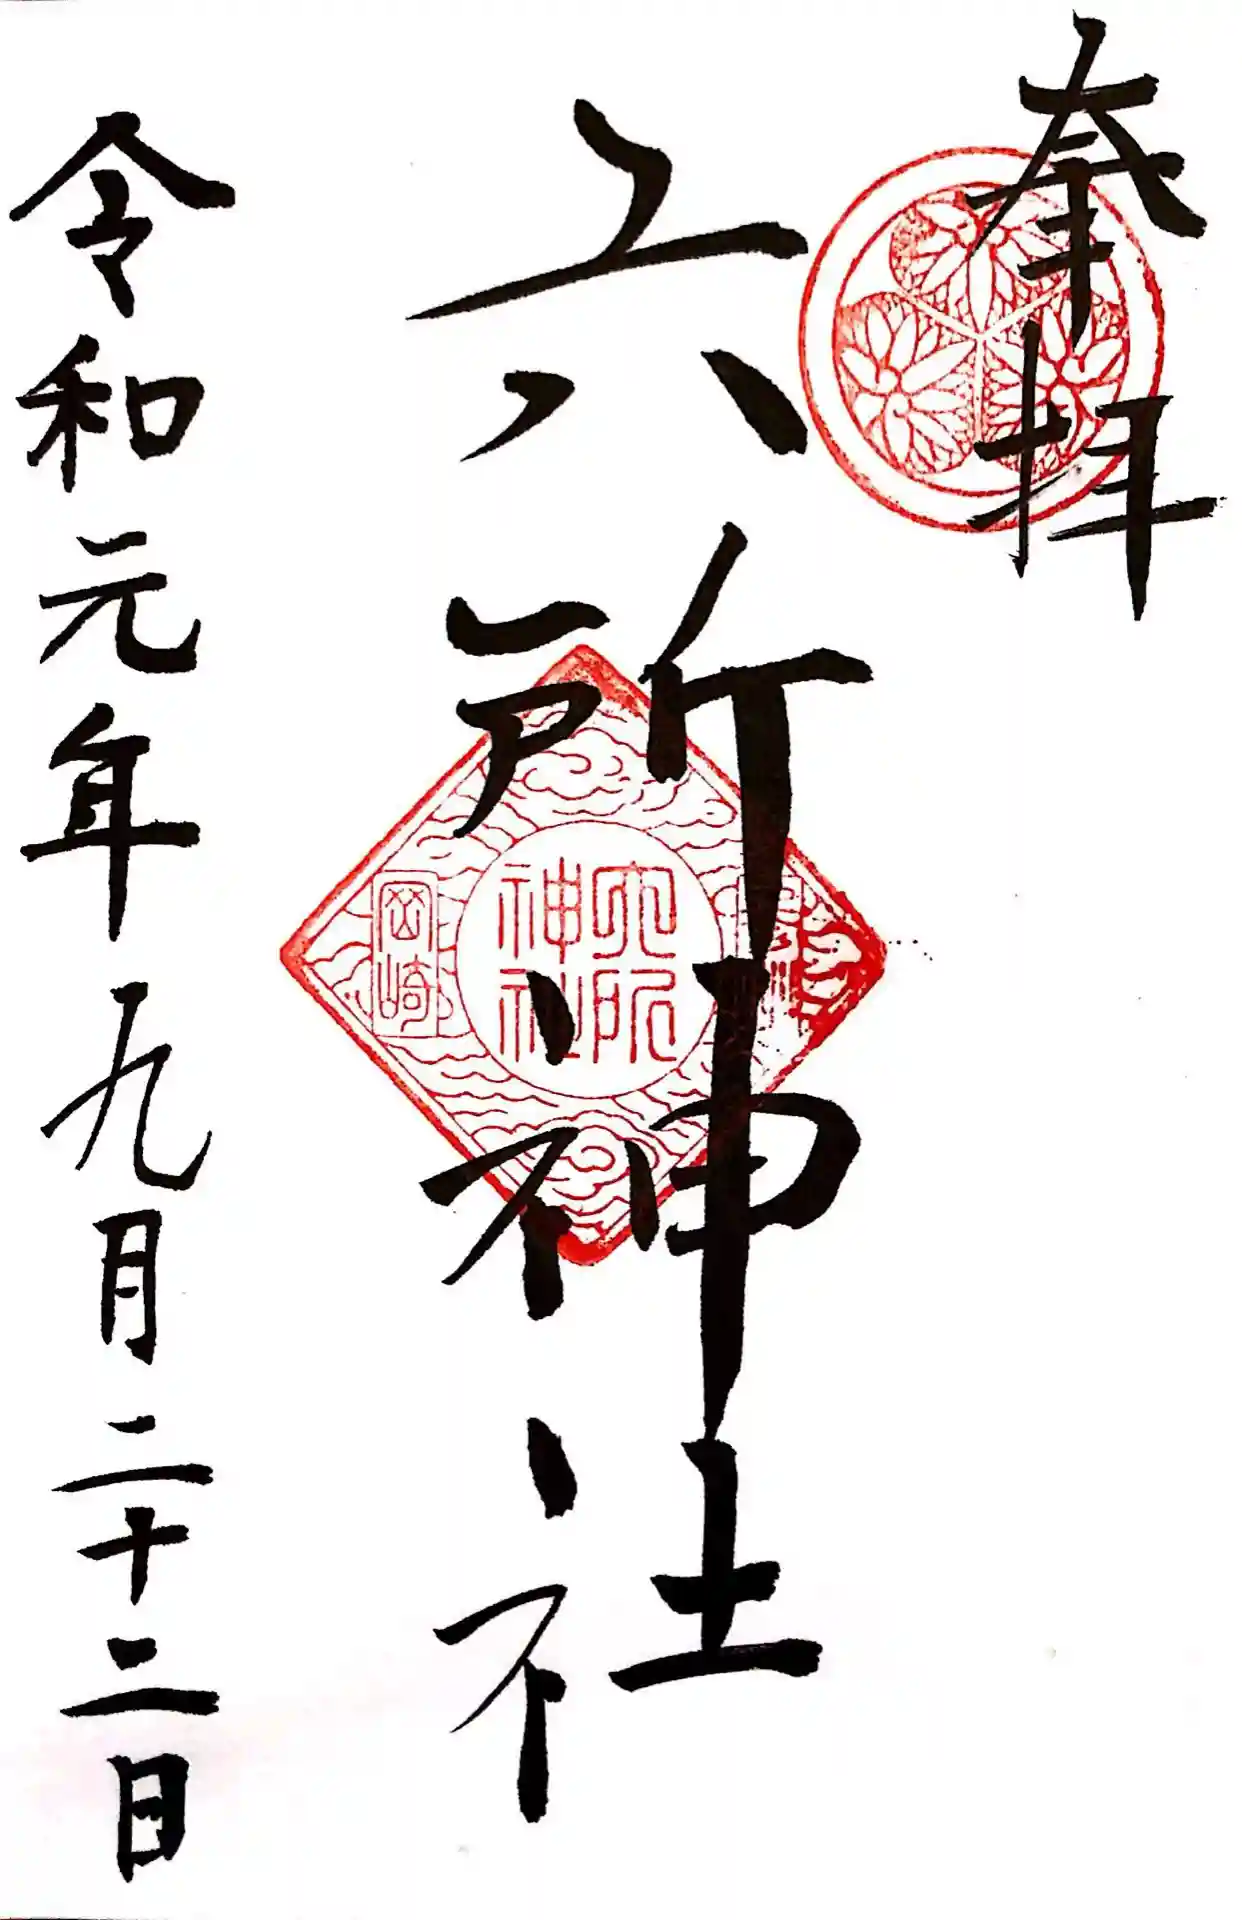 奉拝
六所神社
六所
神社
岡崎
令和元年九月二十二日